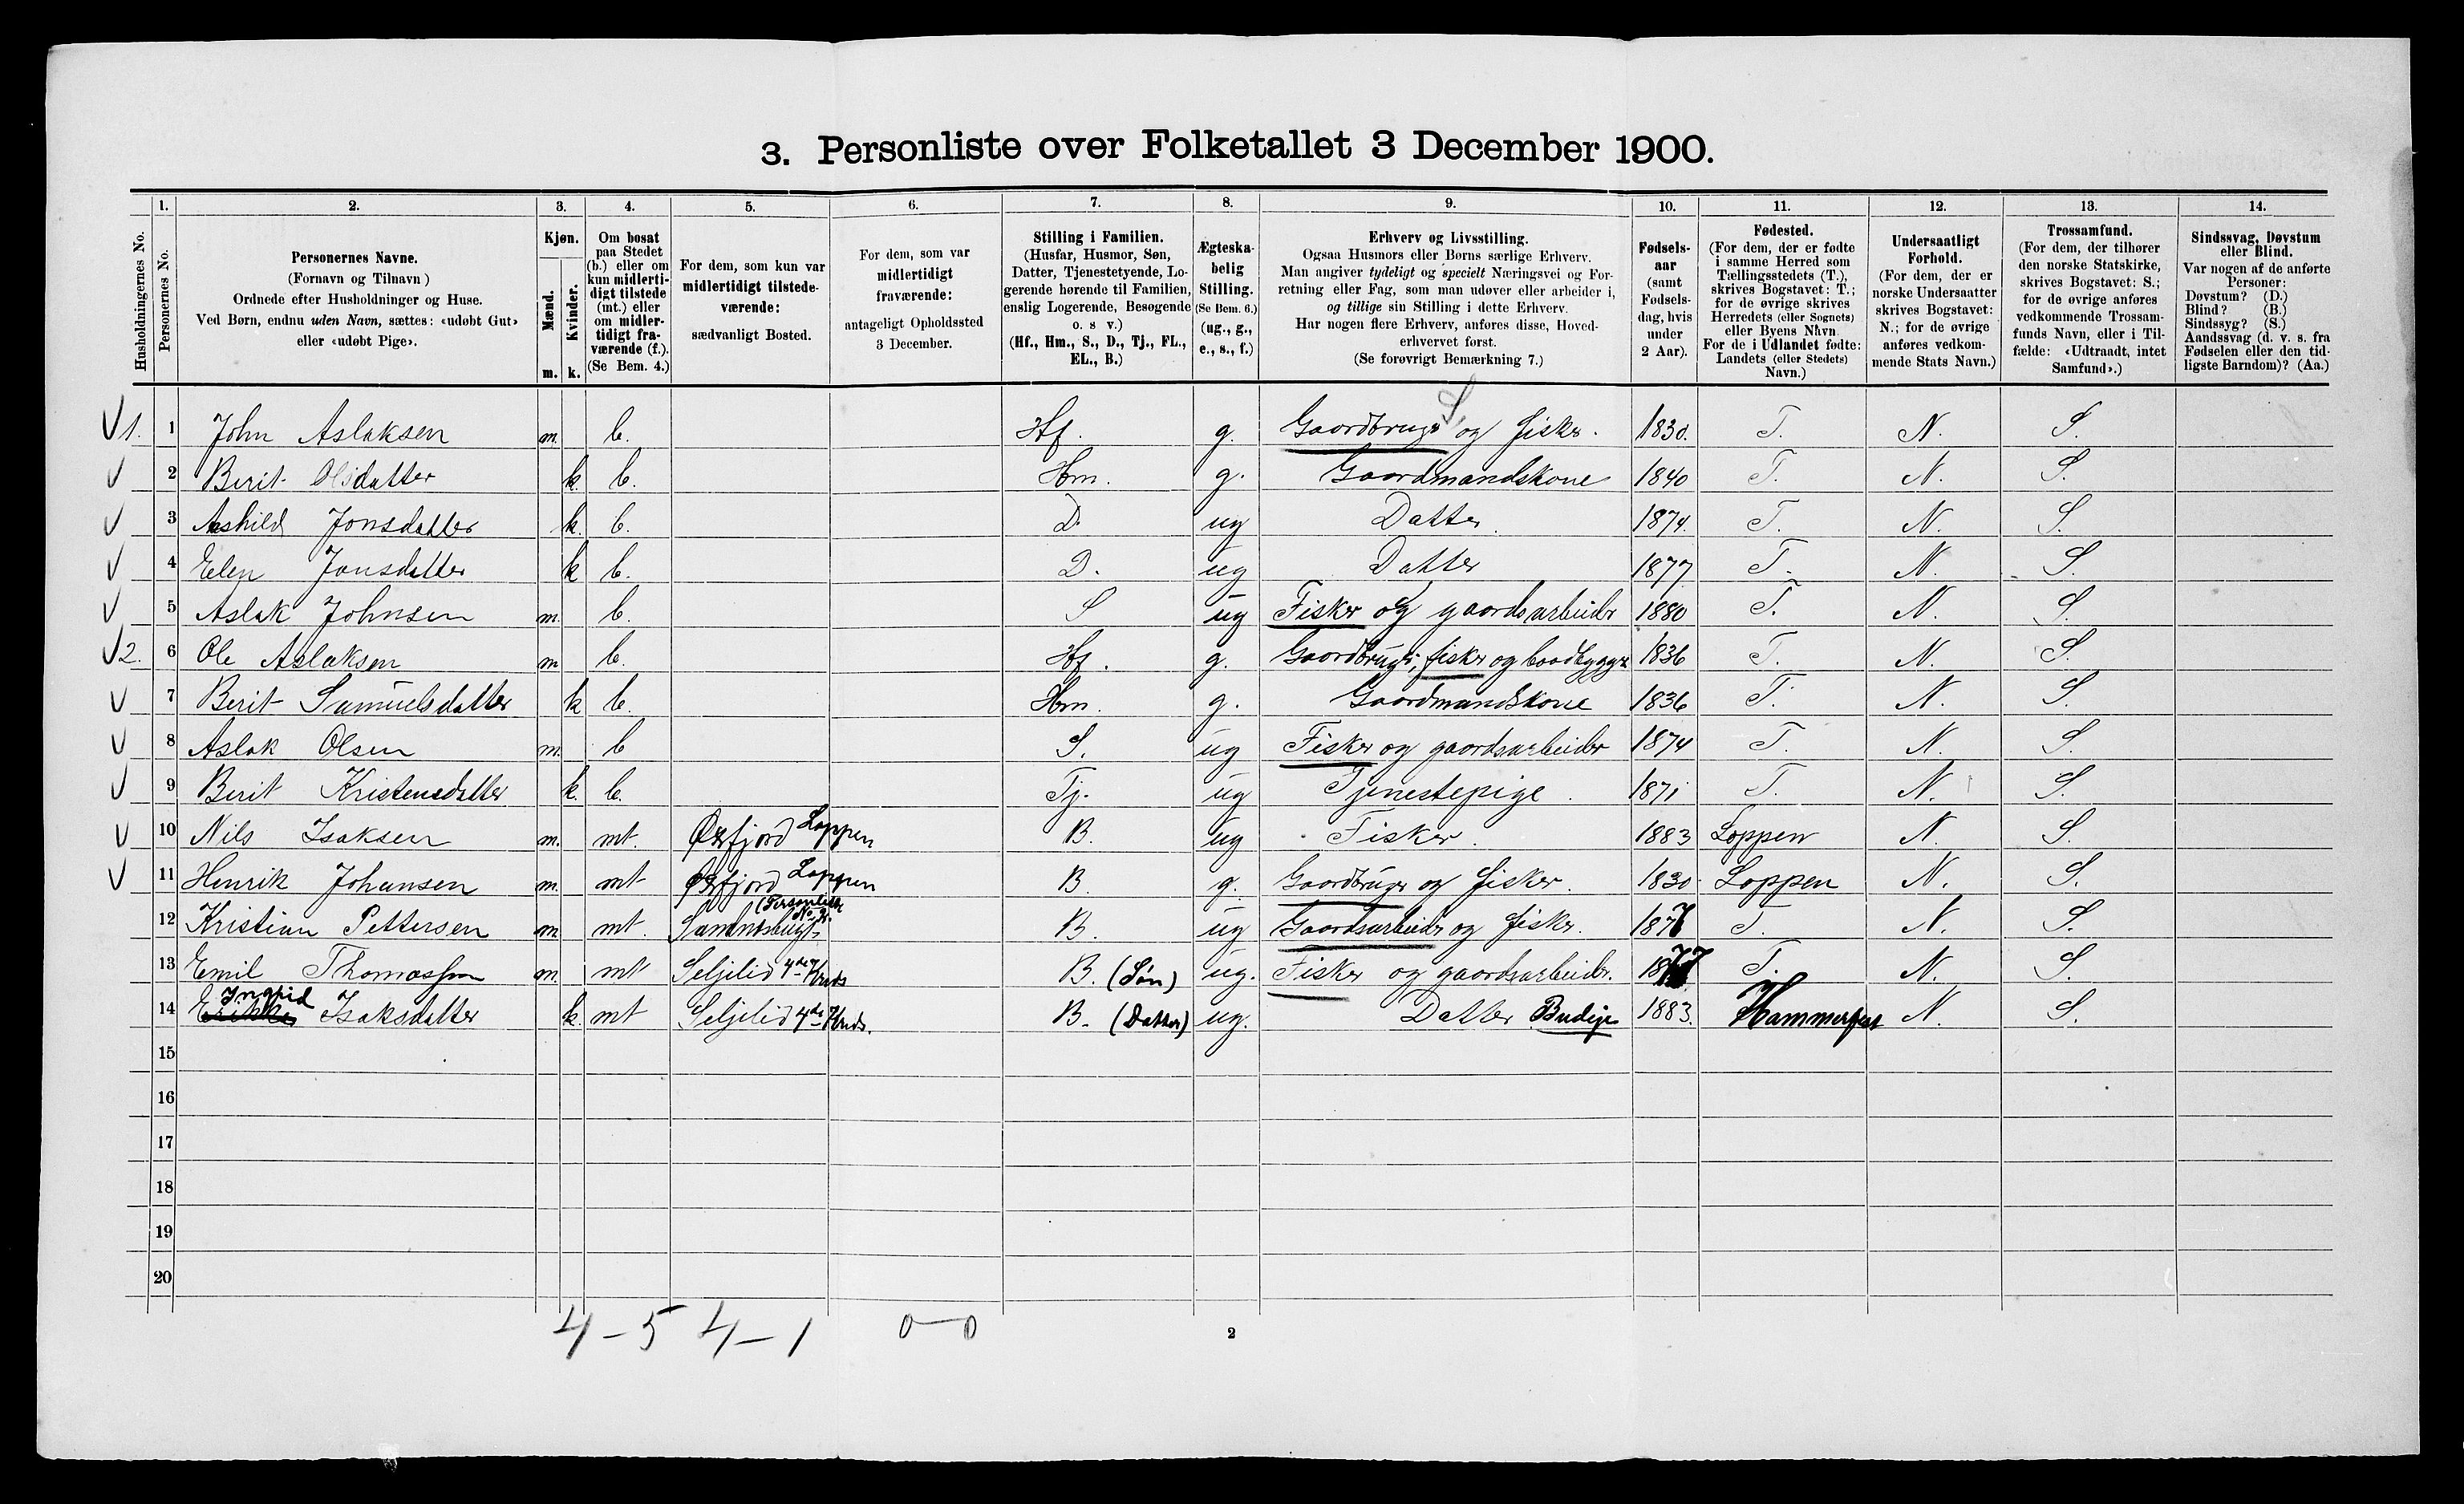 3. Personliste over Folketallet 3 December 1900.
1. 2. 3. 4. 5. 6. 7. 8. 9. 10. 11. 12. 13. 14.
Husholdningernes No.
Personernes No.
Personernes Navne.
(Fornavn og Tilnavn)
Ordnede efter Husholdninger og Huse.
Ved Børn, endnu uden Navn, sættes: «udøbt Gut»
eller «udøbt Pige».
Kjøn.
Mænd.
Kvinder.
m. k.
Om bosat
paa Stedet
(b.) eller om
kun midlerti-
digt tilstede
(mt.) eller
om midler-
tidigt fra-
værende (f.).
(Se Bem. 4.)
For dem, som kun var
midlertidigt tilstede-
værende:
sædvanligt Bosted.
For dem, som var
midlertidigt
fraværende:
antageligt Opholdssted
3 December.
Stilling i Familien.
(Husfar, Husmor, Søn,
Datter, Tjenestetyende, Lo-
gerende hørende til Familien,
enslig Logerende, Besøgende
o. s v.)
(Hf., Hm., S., D., Tj., FL.,
EL., B.)
Ægteska-
belig
Stilling.
(Se Bem. 6.)
(ug., g.,
e., s., f.)
Erhverv og Livsstilling.
Ogsaa Husmors eller Børns særlige Erhverv.
Man angiver tydeligt og specielt Næringsvei og For-
retning eller Fag, som man udøver eller arbeider i,
og tillige sin Stilling i dette Erhverv.
Har nogen flere Erhverv, anføres disse, Hoved-
erhvervet først.
(Se forøvrigt Bemærkning 7.)
Fødsels-
aar
(samt
Fødsels-
dag, hvis
under
2 Aar).
Fødested.
(For dem, der er fødte
i samme Herred som
Tællingsstedets (T.),
skrives Bogstavet: T.;
for de øvrige skrives
Herredets (eller Sognets)
eller Byens Navn
For de i Udlandet fødte:
Landets (eller Stedets)
Navn.)
Undersaatligt
Forhold.
(For dem, der er
norske Undersaatter
skrives Bogstavet:
N.; for de øvrige
anføres vedkom-
mende Stats Navn.)
Trossamfund.
(For dem, der tilhører
den norske Statskirke,
skrives Bogstavet: S.;
for de øvrige anføres
vedkommende Trossam-
funds Navn, eller i Til-
fælde: «Udtraadt, intet
Samfund».)
Sindssvag, Døvstum
eller Blind.
Var nogen af de anførte
Personer:
Døvstum? (D.)
Blind? (B.)
Sindssyg? (S.)
Aandssvag (d. v. s. fra
Fødselen eller den tid-
ligste Barndom)? (Aa.)
1. 1 John Aslaksen m. b. Hf. g. Gaardbruger S. og fisker. 1830. T. N. S.
2 Berit Olsdatter k. b. Hm. g. Gaardmandskone 1840 T. N. S.
3 Ashild Jonsdatter k. b. D. ug Datter. 1874. T. N. S.
4 Elen Jonsdatter k b. D. ug Datter 1877 T. N. S.
5 Aslak Johnsen m. b. S ug Fisker og gaardsarbeider 1880 T. N. S.
2. 6 Ole Aslaksen m b. Hf. g. Gaardbruger, fisker og baadbygger 1836 T. N. S.
7 Berit Samuelsdatter k b. Hm. g. Gaardmandskone 1836 T. N. S.
8 Aslak Olsen m. b S. ug Fisker og gaardsarbeider 1874 T. N. S.
9 Berit Kristensdatter k. b. Tj. ug Tjenestepige. 1871 T. N. S.
10 Nils Isaksen m. mt. Øxfjord Loppen B. ug Fisker. 1883 Loppen N. S.
11 Henrik Johansen m. mt Øxfjord Loppen B. g. Gaardbruger og fisker. 1830 Loppen N. S.
(Personliste
12 Kristian Pettersen m mt. B. ug Gaardsarbeider og fisker. 1877 T. N. S.
13 Emil Thomassen m. mt Seljelid 4de Kreds B. (Søn) ug. Fisker og gaardsarbeider. 1877 T. N. S.
Ingrid
14 Erikke Isaksdatter k. mt Seljelid 4de Kreds. B. (Datter) ug. Datter Budeje 1883. Hammerfest N. S.
15
16
17
18
19
20
4 – 5 4 – 1 0 – 0
2